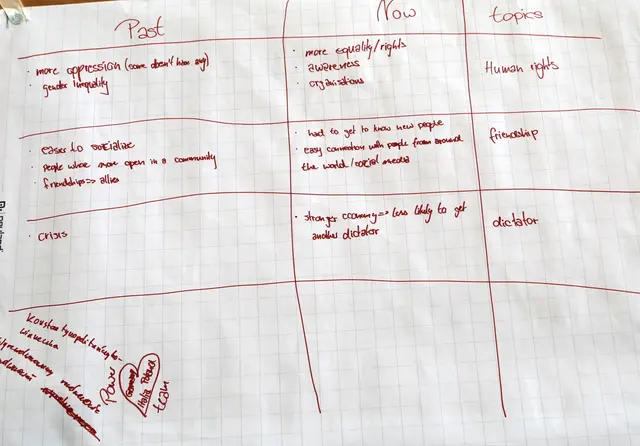 Past
Now
topics
· more oppression (some doesn't have any)
· gender inequality
· more equality/rights
· awareness
· organisations
Human rights
· easier to socialize
· people whose more open in a community
· friendships => allies
· hard to get to know new people
· easy connection with people from around
the world/social media
friendship
· crisis
· stronger economy => less likely to get
another dictator
dictator
Power
Germany
Italia
team